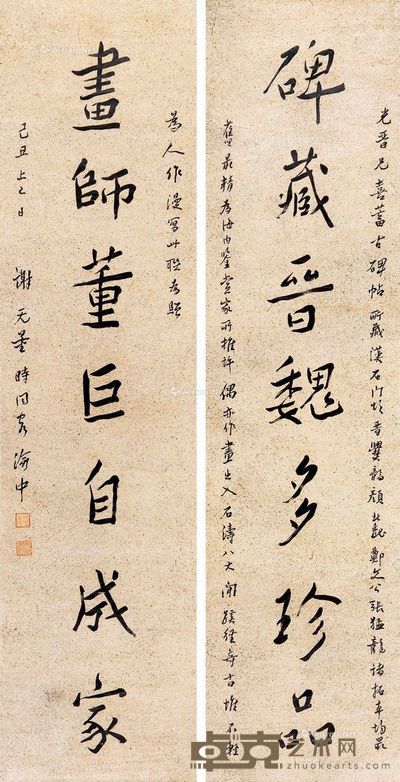 光晉兄喜蓄古碑帖所藏漢石門頌晉爨龍顏北魏鄭文公張猛龍諸拓本均最
碑藏晉魏多珍品
舊最精為海內鑒賞家所推許偶亦作畫出入石濤八大間蹊徑奇古惟不輕
為人作漫寫此聯為
畫師董巨自成家
己丑上巳日
謝无量時同客渝中
卓克艺术网
zhuokearts.com